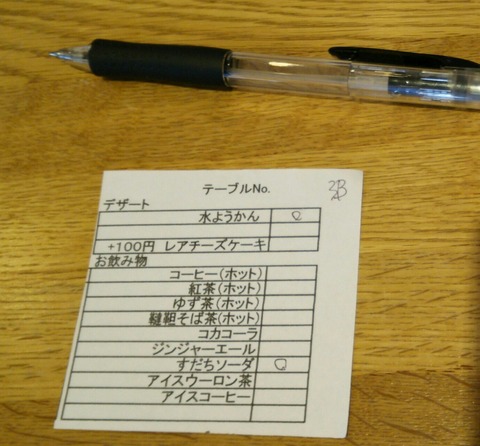 テーブルNo.
デザート
水ようかん
+100円 レアチーズケーキ
お飲み物
コーヒー(ホット)
紅茶(ホット)
ゆず茶(ホット)
韃靼そば茶(ホット)
コカコーラ
ジンジャーエール
すだちソーダ
アイスウーロン茶
アイスコーヒー